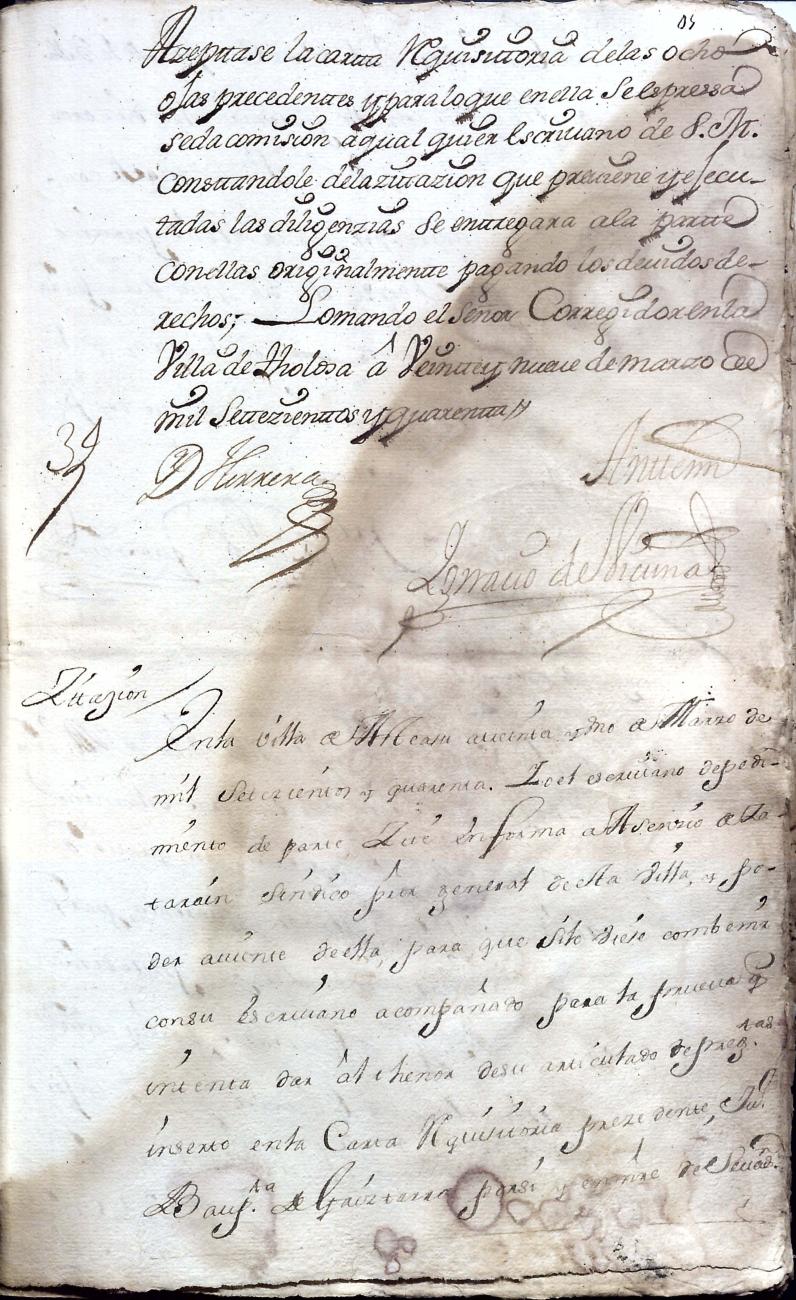 Azeptase la carta Rquisitoria de las ocho
ojas precedentes y para lo que en ella se espressa
se da comision a qual quier Escriuano de S. M.
Constandole de la zitazion que preuiene y ejecu-
tadas las diligenzias se entregara a la parte
con ellas originalmente pagando los deuidos de-
rechos; Lo mando el Señor Corregidor en la
Villa de Tholosa â Veinte y nueue de marzo de
mil Settezientos y quarenta
D Herrera
Antemi
Ignacio de
Zitazion
En la villa de a treinta y uno de Marzo de
mil Setezientos y quarenta. Yo el escriuano de pedi-
mento de parte Zité en forma a Asenzio de Za
tarain sindico pror general de esta villa, y po-
der auiente de ella, para que si le diese combenir
con su escriuano acompañado para la prueua q
intenta dar al thenor de su articulado de preg.tas
inserto en la Carta Rquisitoria prezedente, Ju.
Baup.ta de Gaiztarro por si y en nre de